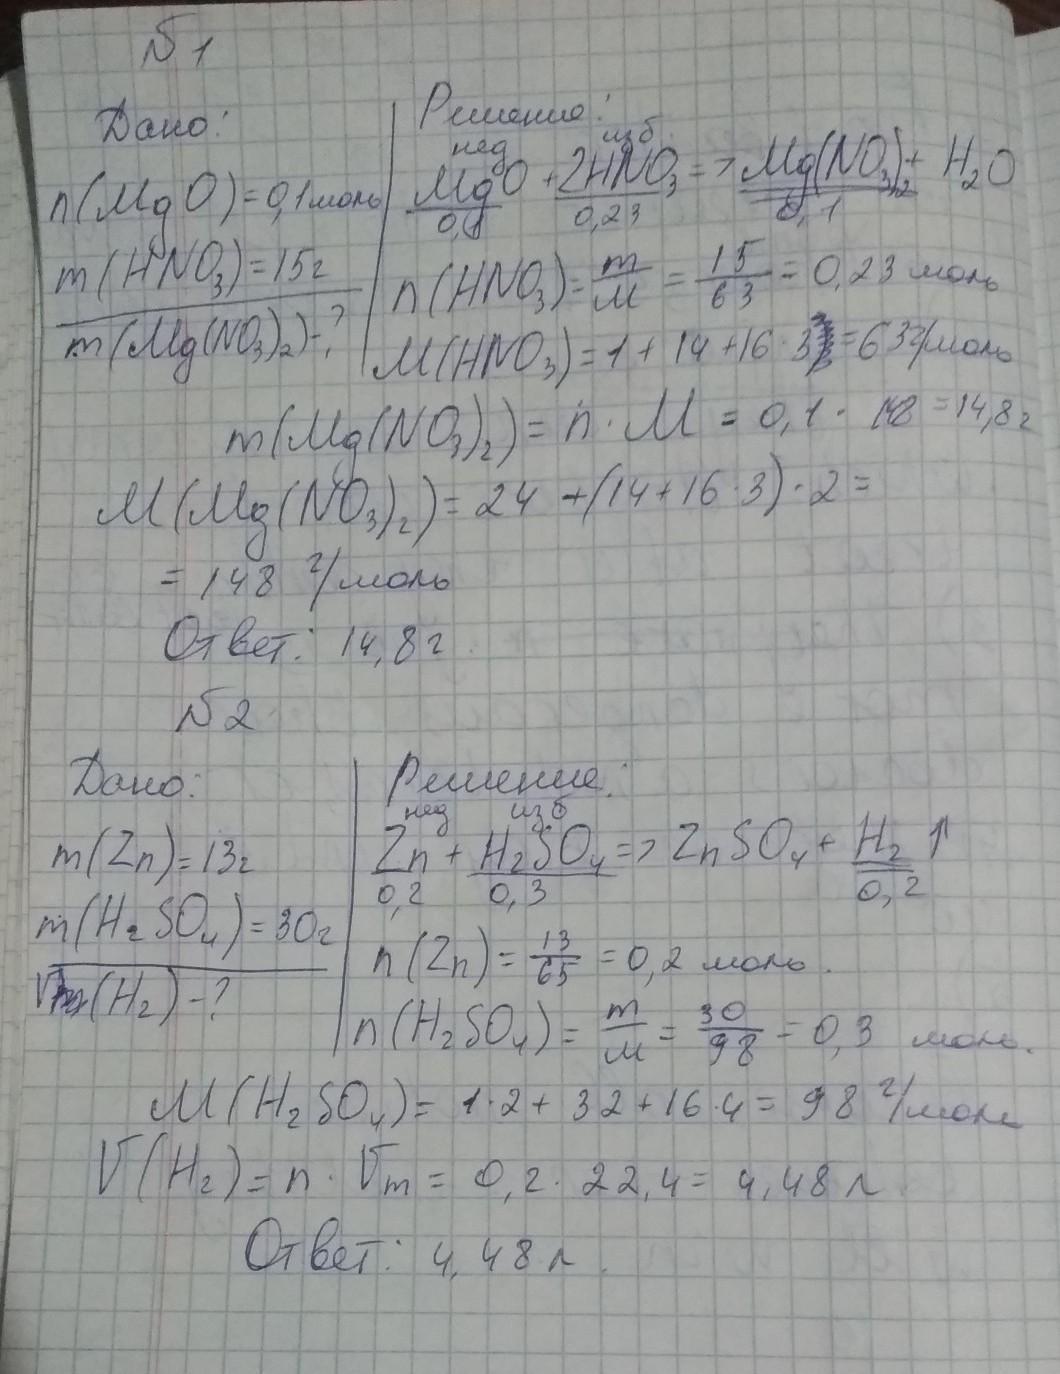 №1
Дано:
n(MgO)=0,1моль
m(HNO3)=15г
m(Mg(NO3)2)-?
Решение:
нед изб.
MgO + 2HNO3 => Mg(NO3)2 + H2O
0,1 0,23 0,1
n(HNO3)= m/M = 15/63 = 0,23 моль
M(HNO3)=1+14+16·3=63г/моль
m(Mg(NO3)2)= n·M = 0,1·148=14,8г
M(Mg(NO3)2)=24+(14+16·3)·2=
=148 г/моль
Ответ: 14,8г.
№2
Дано:
m(Zn)=13г
m(H2SO4)=30г
V(H2)-?
Решение:
нед изб
Zn + H2SO4 => ZnSO4 + H2↑
0,2 0,3 0,2
n(Zn)= 13/65 =0,2 моль.
n(H2SO4)= m/M = 30/98 = 0,3 моль.
M(H2SO4)= 1·2+32+16·4=98 г/моль
V(H2)= n·Vm = 0,2·22,4= 4,48 л
Ответ: 4,48 л.